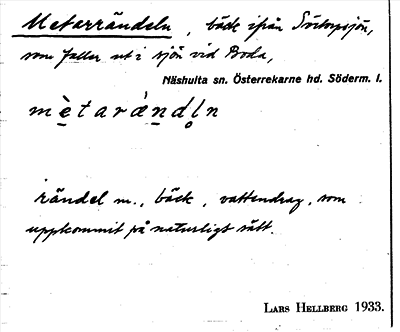 Metarrändeln, bäck ifrån Sörtorpsjön,
som faller ut i sjön vid Boda,
Näshulta sn. Österrekarne hd. Söderm. l.
mètarándl̥n
rändel m., bäck, vattendrag, som
uppkommit på naturligt sätt.
LARS HELLBERG 1933.